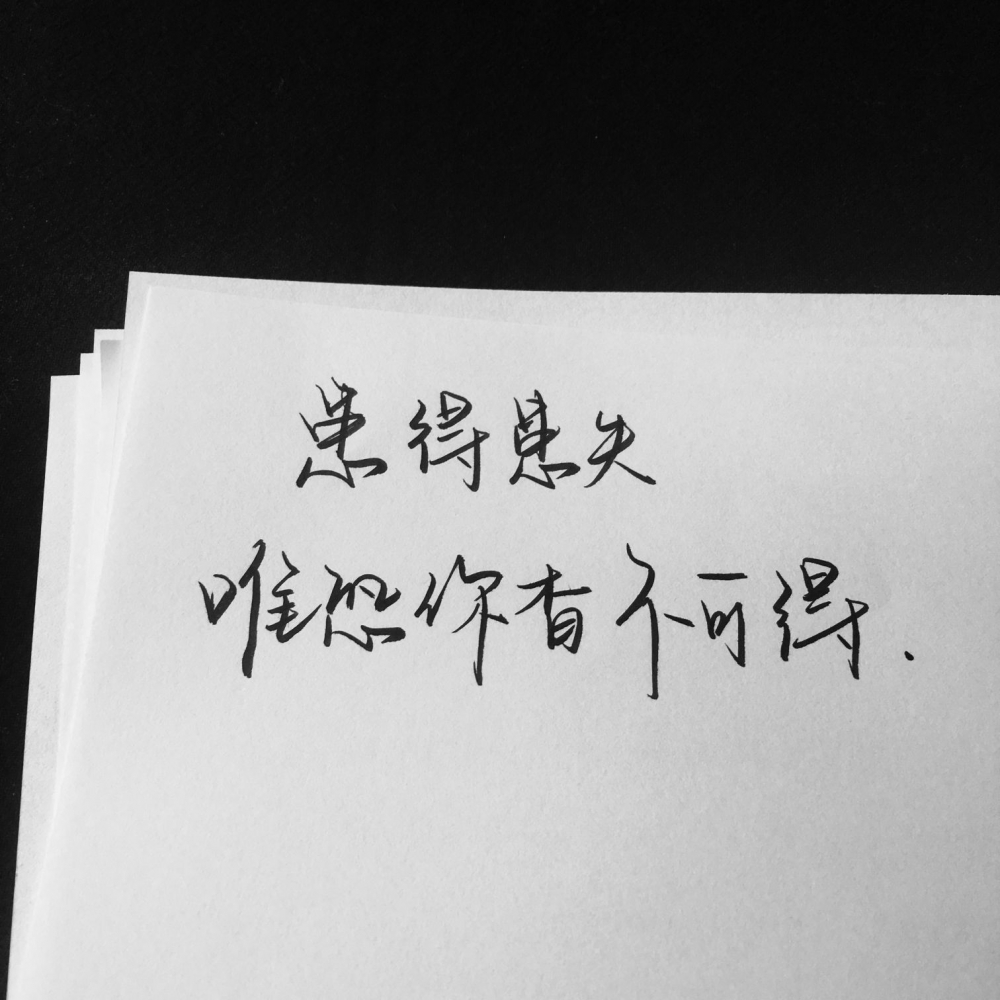 患得患失
唯恐你杳不可得.